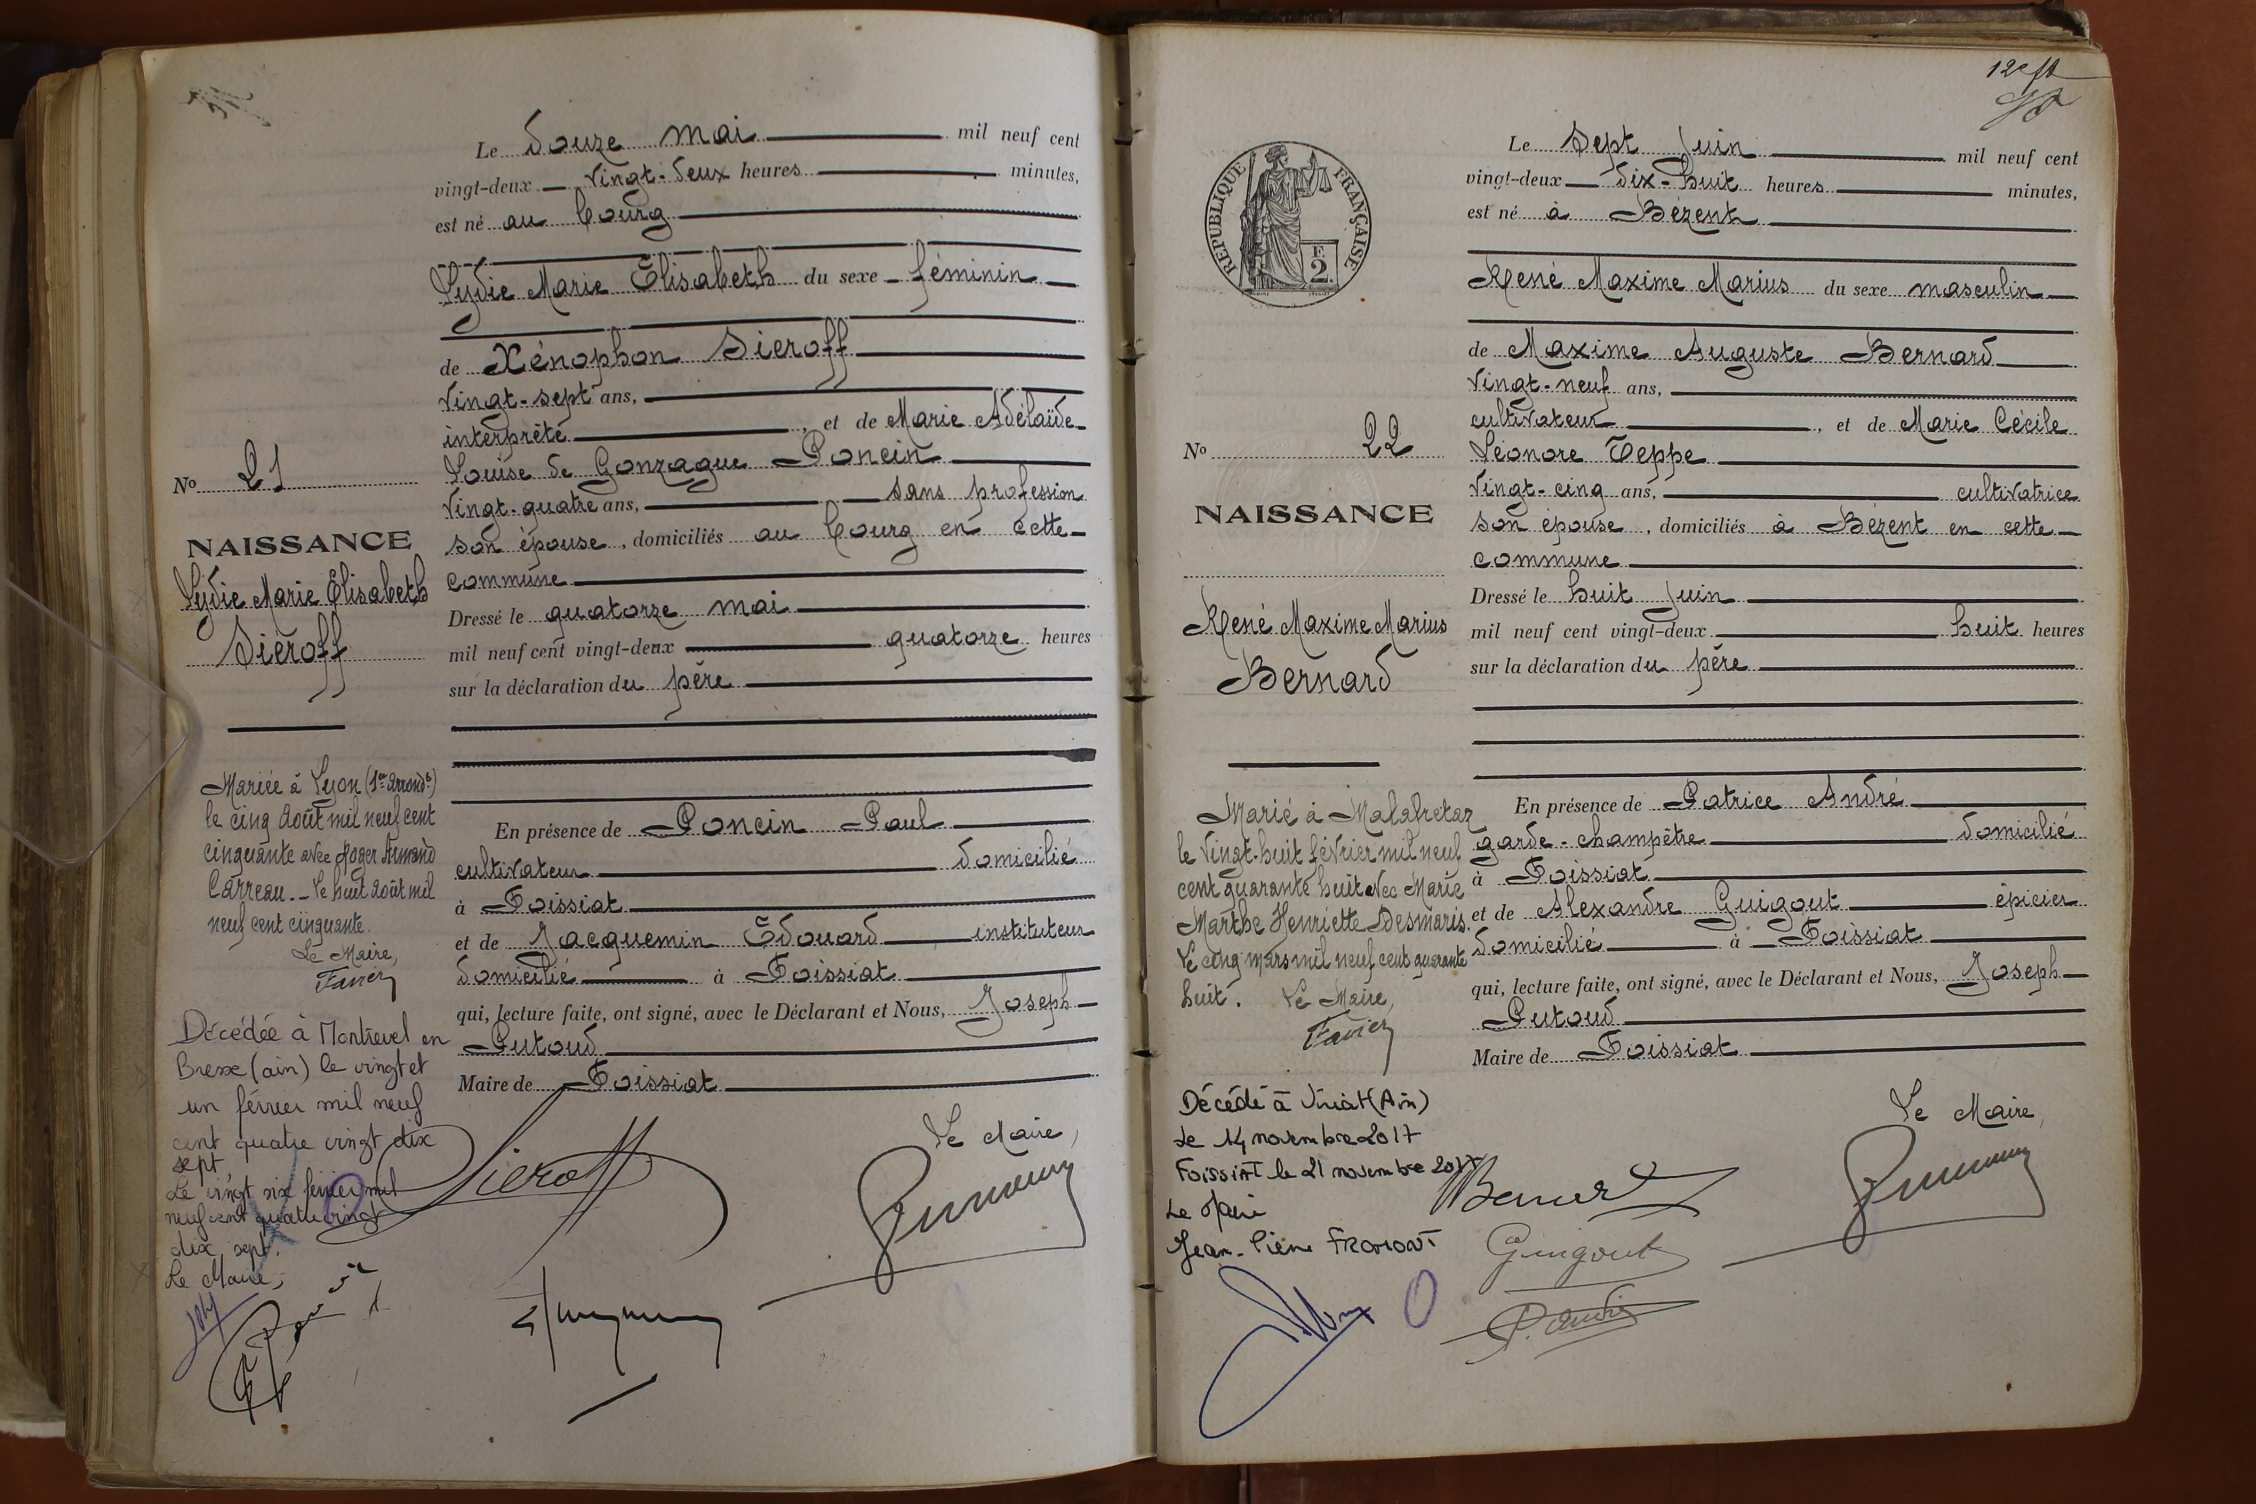 Le douze mai mil neuf cent
vingt-deux vingt-deux heures minutes,
est né au bourg
Lydie Marie Elisabeth du sexe féminin
de Xénophon Sieroff
vingt-sept ans,
interprète, et de Marie Adélaïde
Louise de Gonzague Poncin
vingt-quatre ans, sans profession
son épouse, domiciliés au bourg en cette
commune
Dressé le quatorze mai
mil neuf cent vingt-deux quatorze heures
sur la déclaration du père
En présence de Poncin Paul
cultivateur domicilié
à Foissiat
et de Jacquemin Édouard instituteur
domicilié à Foissiat
qui, lecture faite, ont signé, avec le Déclarant et Nous, Joseph
Putoud
Maire de Foissiat
Le Maire,
Sieroff
No 21
NAISSANCE
Lydie Marie Elisabeth
Sieroff
Mariée à Lyon (1er arrondt)
le cinq août mil neuf cent
cinquante avec Roger Armand
Carreau. - Le huit août mil
neuf cent cinquante.
Le Maire,
Favier
Décédée à Montrevel en
Bresse (ain) le vingt et
un février mil neuf
cent quatre vingt dix
sept
Le vingt six février mil
neuf cent quatre vingt
dix sept.
Le Maire,
12e ft
Le sept juin mil neuf cent
vingt-deux dix-huit heures minutes,
est né à Bézent
René Maxime Marius du sexe masculin
de Maxime Auguste Bernard
vingt-neuf ans,
cultivateur, et de Marie Cécile
Léonore Teppe
vingt-cinq ans, cultivatrice
son épouse, domiciliés à Bézent en cette
commune
Dressé le huit juin
mil neuf cent vingt-deux huit heures
sur la déclaration du père
En présence de Patrice André
garde-champêtre domicilié
à Foissiat
et de Alexandre Guigout épicier
domicilié à Foissiat
qui, lecture faite, ont signé, avec le Déclarant et Nous, Joseph
Putoud
Maire de Foissiat
Le Maire,
Bernard
Guigout
P. André
RÉPUBLIQUE FRANÇAISE
F.
2.
No 22
NAISSANCE
René Maxime Marius
Bernard
Marié à Malafretaz
le vingt-huit février mil neuf
cent quarante huit avec Marie
Marthe Henriette Desmaris.
Le cinq mars mil neuf cent quarante
huit. Le Maire,
Favier
Décédé à Viriat (Ain)
Le 14 novembre 2017
FOISSIAT le 21 novembre 2017
Le Maire
Jean-Pierre FROMONT